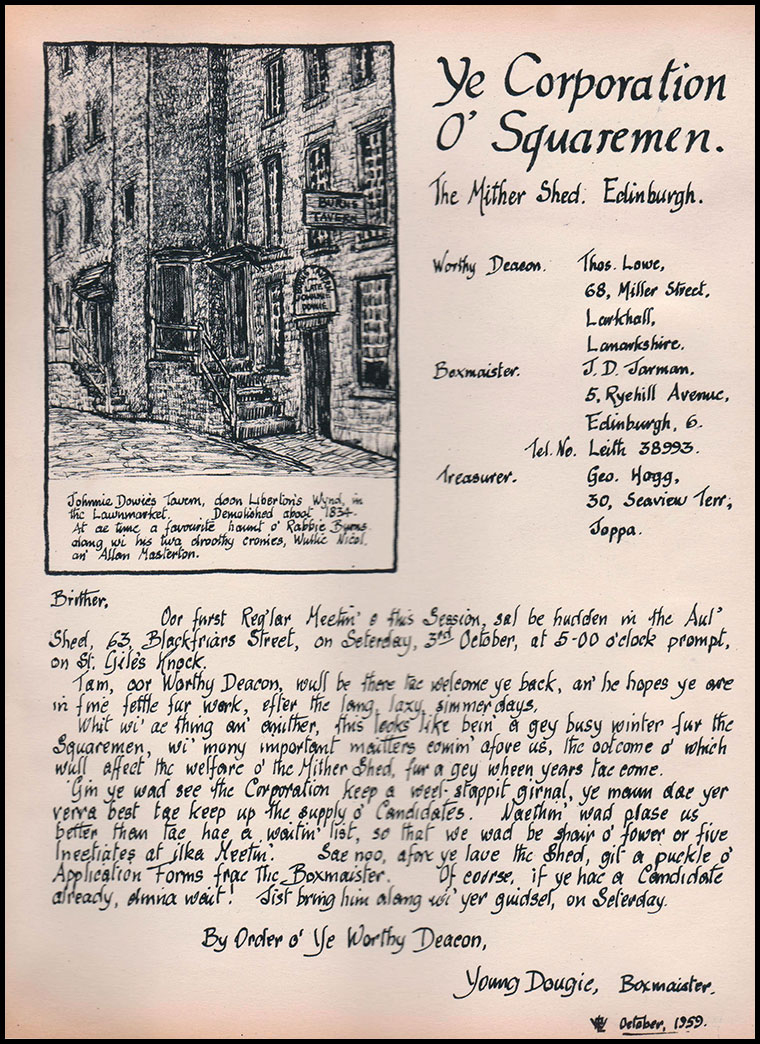 Ye Corporation
O' Squaremen.
The Mither Shed. Edinburgh.
Worthy Deacon. Thos. Lowe,
68, Miller Street,
Larkhall,
Lanarkshire.
Boxmaister. J. D. Jarman.
5, Ryehill Avenue,
Edinburgh, 6.
Tel. No. Leith 38993.
Treasurer. Geo. Hogg,
30, Seaview Terr,
Joppa.
BURNS
TAVERN
LATE
JOHNNIE
DOWIE
Johnnie Dowie's Tavern, doon Liberton's Wynd, in
the Lawnmarket. Demolished aboot 1834.
At ae time a favourite haunt o' Rabbie Burns
alang wi his twa droothy cronies, Wullie Nicol,
an' Allan Masterton.
Brither,
Oor furst Reg'lar Meetin' o this Session, sal be hudden in the Aul'
Shed, 63, Blackfriars Street, on Seterday, 3rd October, at 5-00 o'clock prompt,
on St. Giles Knock.
Tam, oor Worthy Deacon, wull be there tae welcome ye back, an' he hopes ye are
in fine fettle fur work, efter the lang, lazy, simmer days.
Whit wi' ae thing an' anither, this looks like bein' a gey busy winter fur the
Squaremen, wi' mony important maitters comin' afore us, the ootcome o' which
wull affect the welfare o' the Mither Shed, fur a gey wheen years tae come.
Gin ye wad see the Corporation keep a weel-stappit girnal, ye maun dae yer
verra best tae keep up the supply o' Candidates. Naethin' wad plase us
better than tae hae a waitin' list, so that we wad be shair o' fower or five
Ineetiates at ilka Meetin'. Sae noo, afore ye lave the Shed, git a puckle o'
Application Forms frae the Boxmaister. Of course, if ye hae a Candidate
already, dinna wait! Jist bring him alang wi' yer guidsel, on Seterday.
By Order o' Ye Worthy Deacon,
Young Dougie, Boxmaister.
October, 1959.